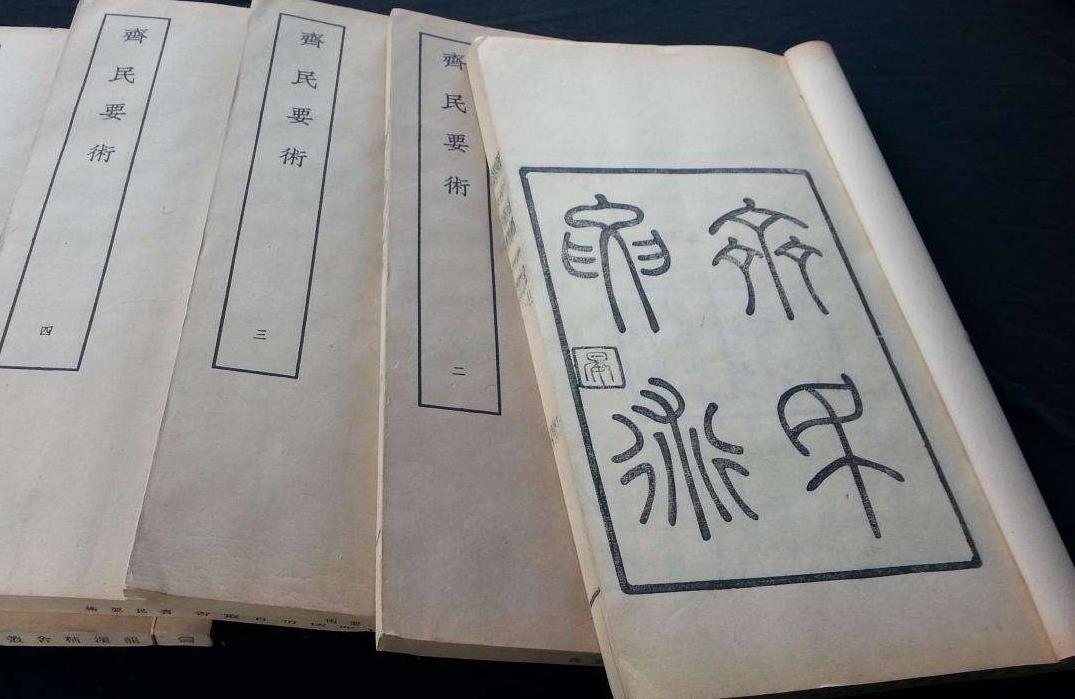 齊民
要術
齊民要術
二
齊民要術
三
齊民要術
四